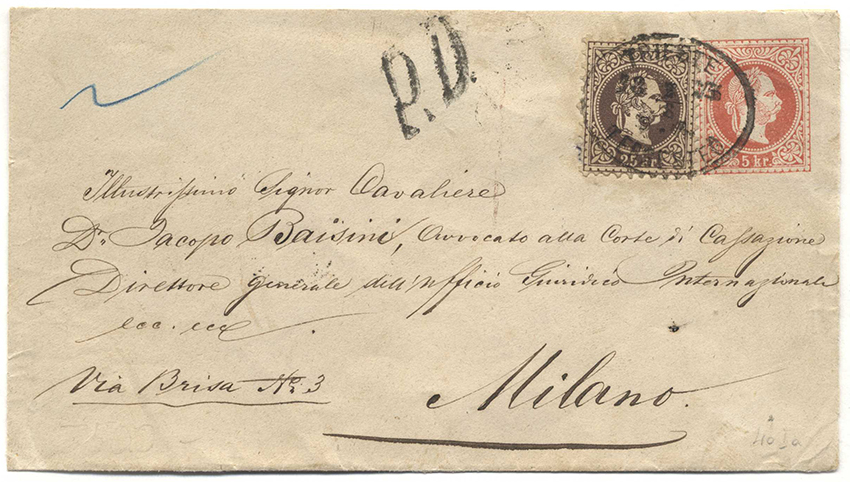 P.D.
TRIESTE
25 kr.
5 kr.
Illustrissimo Signor Cavaliere
Dr. Jacopo Baisini, Avvocato alla Corte di Cassazione
Direttore generale dell'Ufficio Giuridico Internazionale
ecc. ecc
Via Brisa No: 3
Milano.